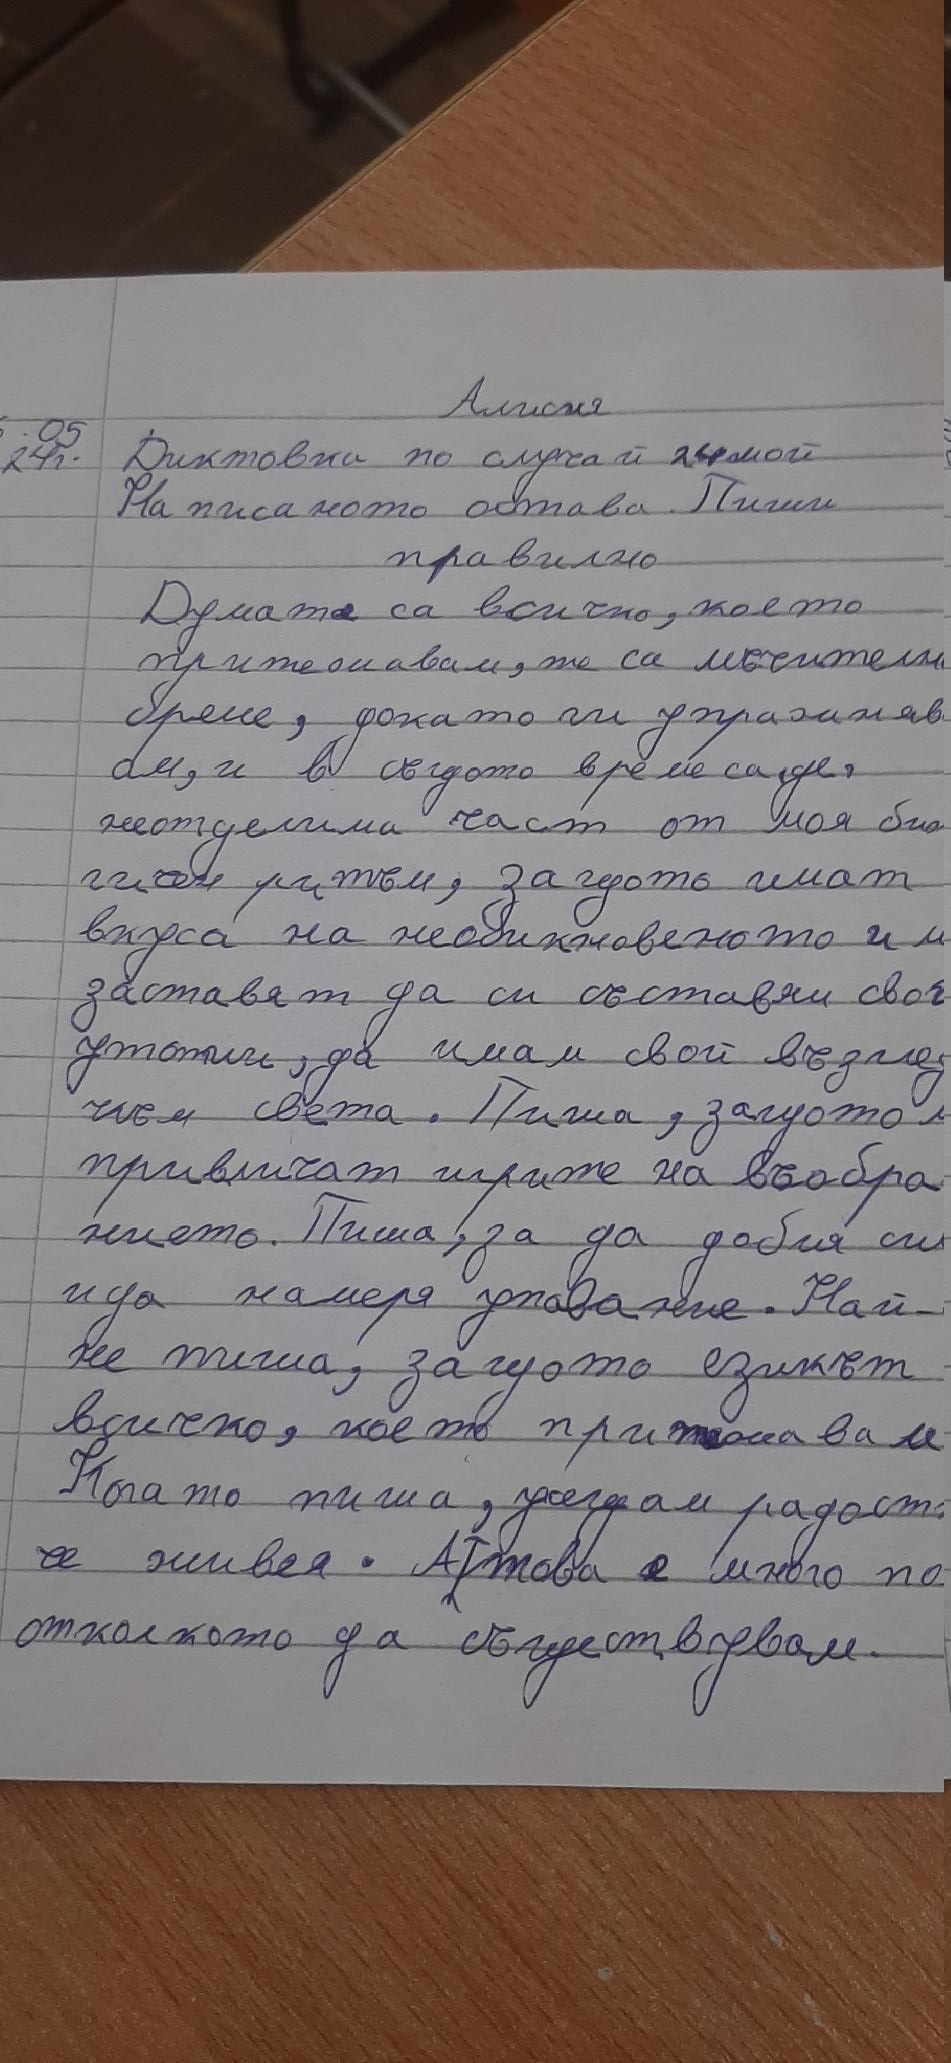 Алисия
.05
24г. Диктовки по случай 24 мой
Написаното остава. Пиши
правилно
Думате са всичко, което
притежавам, те са мъчителн
бреме, докато ги упражняв
ам, и в същото време са
неотделима част от моя био
гичен ритъм, защото имат
вкуса на необикновеното и м
заставят да си съставям своя
утопии, да имам свой възглед
към света. Пиша, защото м
привличат игрите на въобра
нието. Пиша, за да добия сил
и да намеря упование. Най-
не пиша, защото езикът
всичко, което притежавам
Когато пиша, усещам радост
че живея. А товa е много по
отколкото да съществувам.